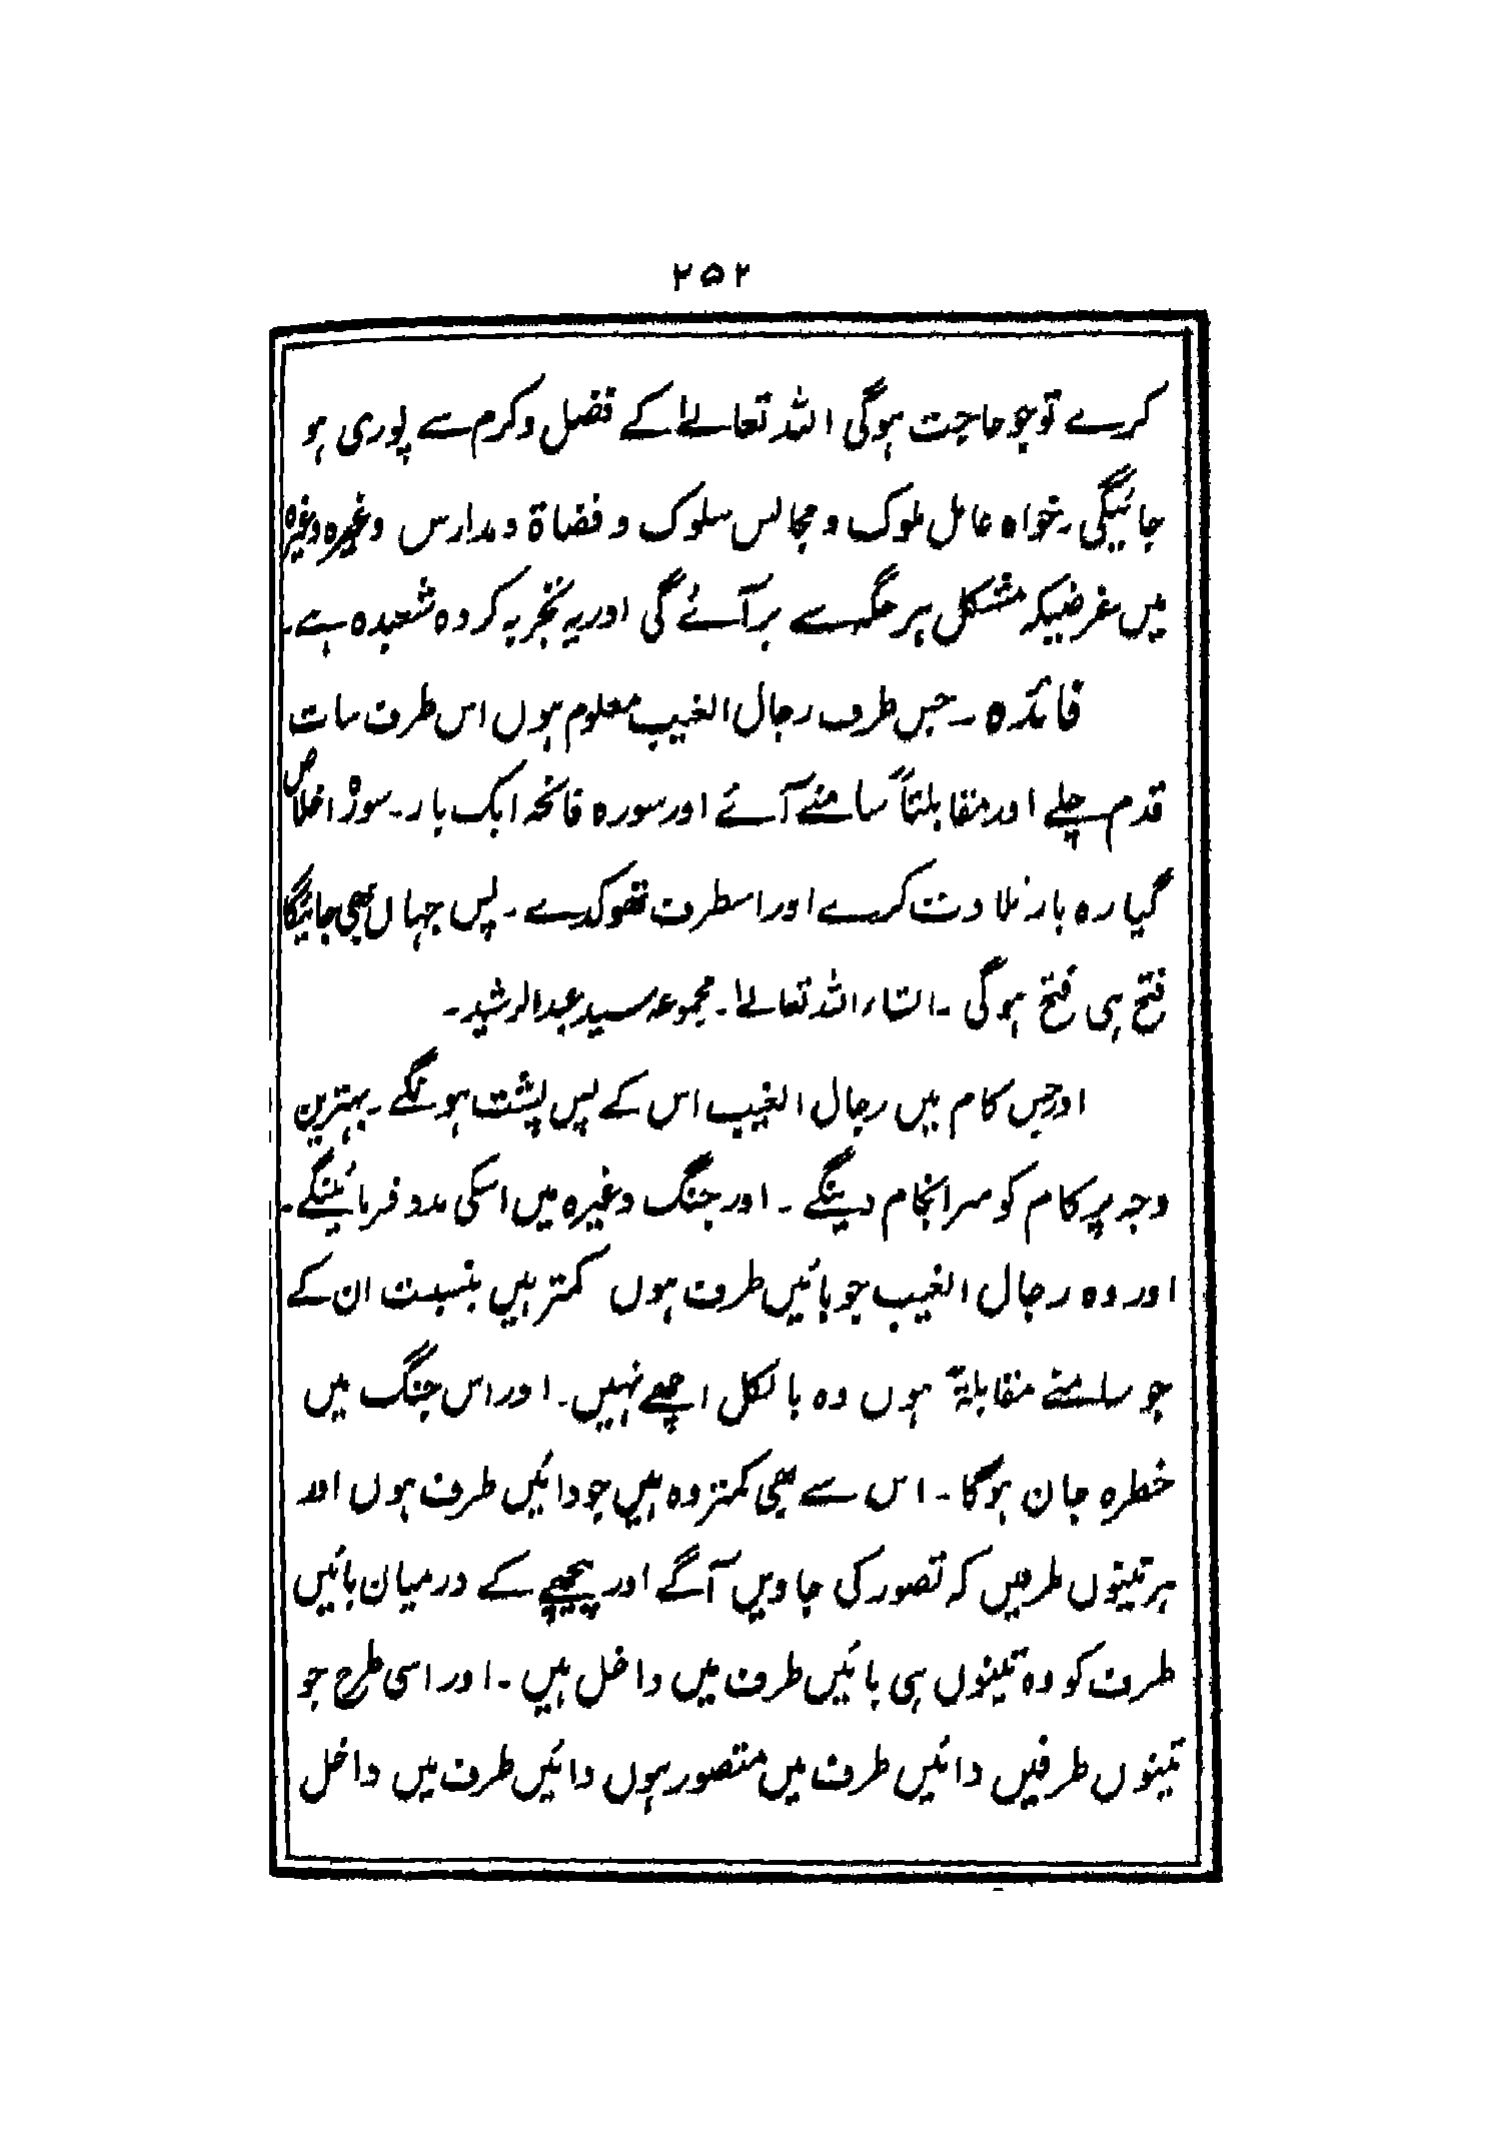 ۲۵۲
کرے تو جو حاجت ہوگی اللہ تعالےٰ کے فضل وکرم سے پوری ہو
جائیگی۔ خواہ عامل ملوک و مجالس سلوک و قضاۃ و مدارس وغیرہ وغیرہ
میں غرضیکہ مشکل ہر جگہ سے برآئے گی اور یہ تجربہ کردہ شعبدہ ہے۔
فائدہ ۔ جس طرف رجال الغیب معلوم ہوں اس طرف سات
قدم چلے اور مقابلتاً سامنے آئے اور سورہ فاتحہ ایک بار۔ سورۂ اخلاص
گیارہ بار تلاوت کرے اور اسطرف تھوکدے ۔ پس جہاں بھی جائیگا
فتح ہی فتح ہوگی ۔ انشاء اللہ تعالےٰ ۔ مجموعہ سید عبدالرشید ۔
اور جس کام میں رجال الغیب اس کے پس پشت ہونگے ۔ بہترین
وجہ پر کام کو سرانجام دینگے ۔ اور جنگ وغیرہ میں اسکی مدد فرمائینگے ۔
اور وہ رجال الغیب جو بائیں طرف ہوں کمتر ہیں بنسبت ان کے
جو سامنے مقابلۃً ہوں وہ بالکل اچھے نہیں ۔ اور اس جنگ میں
خطرہ جان ہوگا ۔ اس سے بھی کمتر وہ ہیں جو دائیں طرف ہوں اور
ہر تینوں طرفیں کہ تصور کی جاویں آگے اور پیچھے کے درمیان بائیں
طرف کو وہ تینوں ہی بائیں طرف میں داخل ہیں ۔ اور اسی طرح جو
تینوں طرفیں دائیں طرف میں متصور ہوں دائیں طرف میں داخل